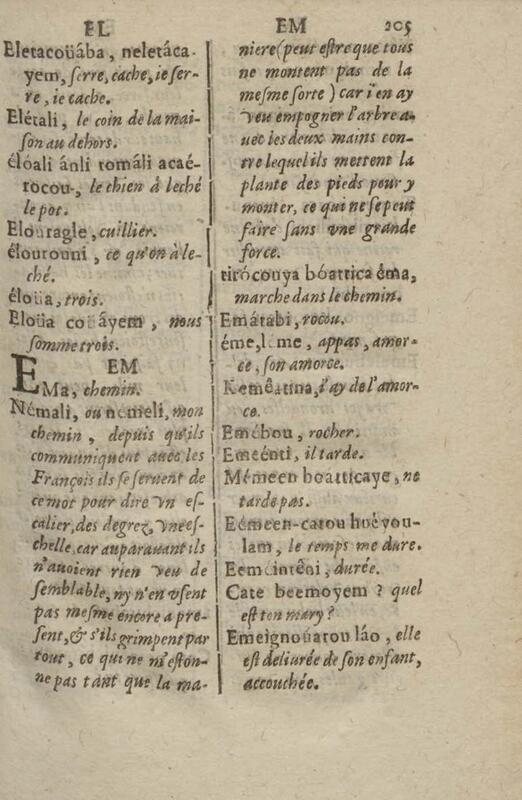 EL
EM
205
Eletacoüába, neletáca-
yem, serre, cache, ie ser-
re, ie cache.
Elétali, le coin de la mai-
son au dehors.
éloali ánli tomáli acaé-
rocou-, le chien à leché
le pot.
Elouragle, cuillier.
élourouni, ce qu'on à le-
ché.
éloüa, trois.
Eloüa coüáyem, nous
somme trois.
EM
EMa, chemin.
Némali, ou németi, mon
chemin, depuis qu'ils
communiquent auec les
François ils se seruent de
ce mot pour dire vn es-
calier, des degrez, vne es-
chelle, car auparauant ils
n'auoient rien veu de
semblable, ny n'en vsent
pas mesme encore a pre-
sent, & s'ils grimpent par
tout, ce qui ne m'eston-
ne pas tànt que la ma-
niere (peut estre que tous
ne montent pas de la
mesme sorte) car i'en ay
veu empogner l'arbre a-
uec les deux mains con-
tre lequel ils mettent la
plante des pieds pour y
monter, ce qui ne se peut
faire sans vne grande
force.
tirócouya bóattica éma,
marche dans le chemin.
Emátabi, rocou.
éme, leme, appas, amor-
ce, son amorce.
Kemêatina, i'ay de l'amor-
ce.
Emébou, rocher.
Emeénti, il tarde.
Mémeen boatticaye, ne
tarde pas.
Eémeen-catou huéyou-
lam, le temps me dure.
Eeméintêni, durée.
Cate beemoyem ? quel
est ton mary?
Emeignoüatou láo, elle
est deliurée de son enfant,
accouchée.